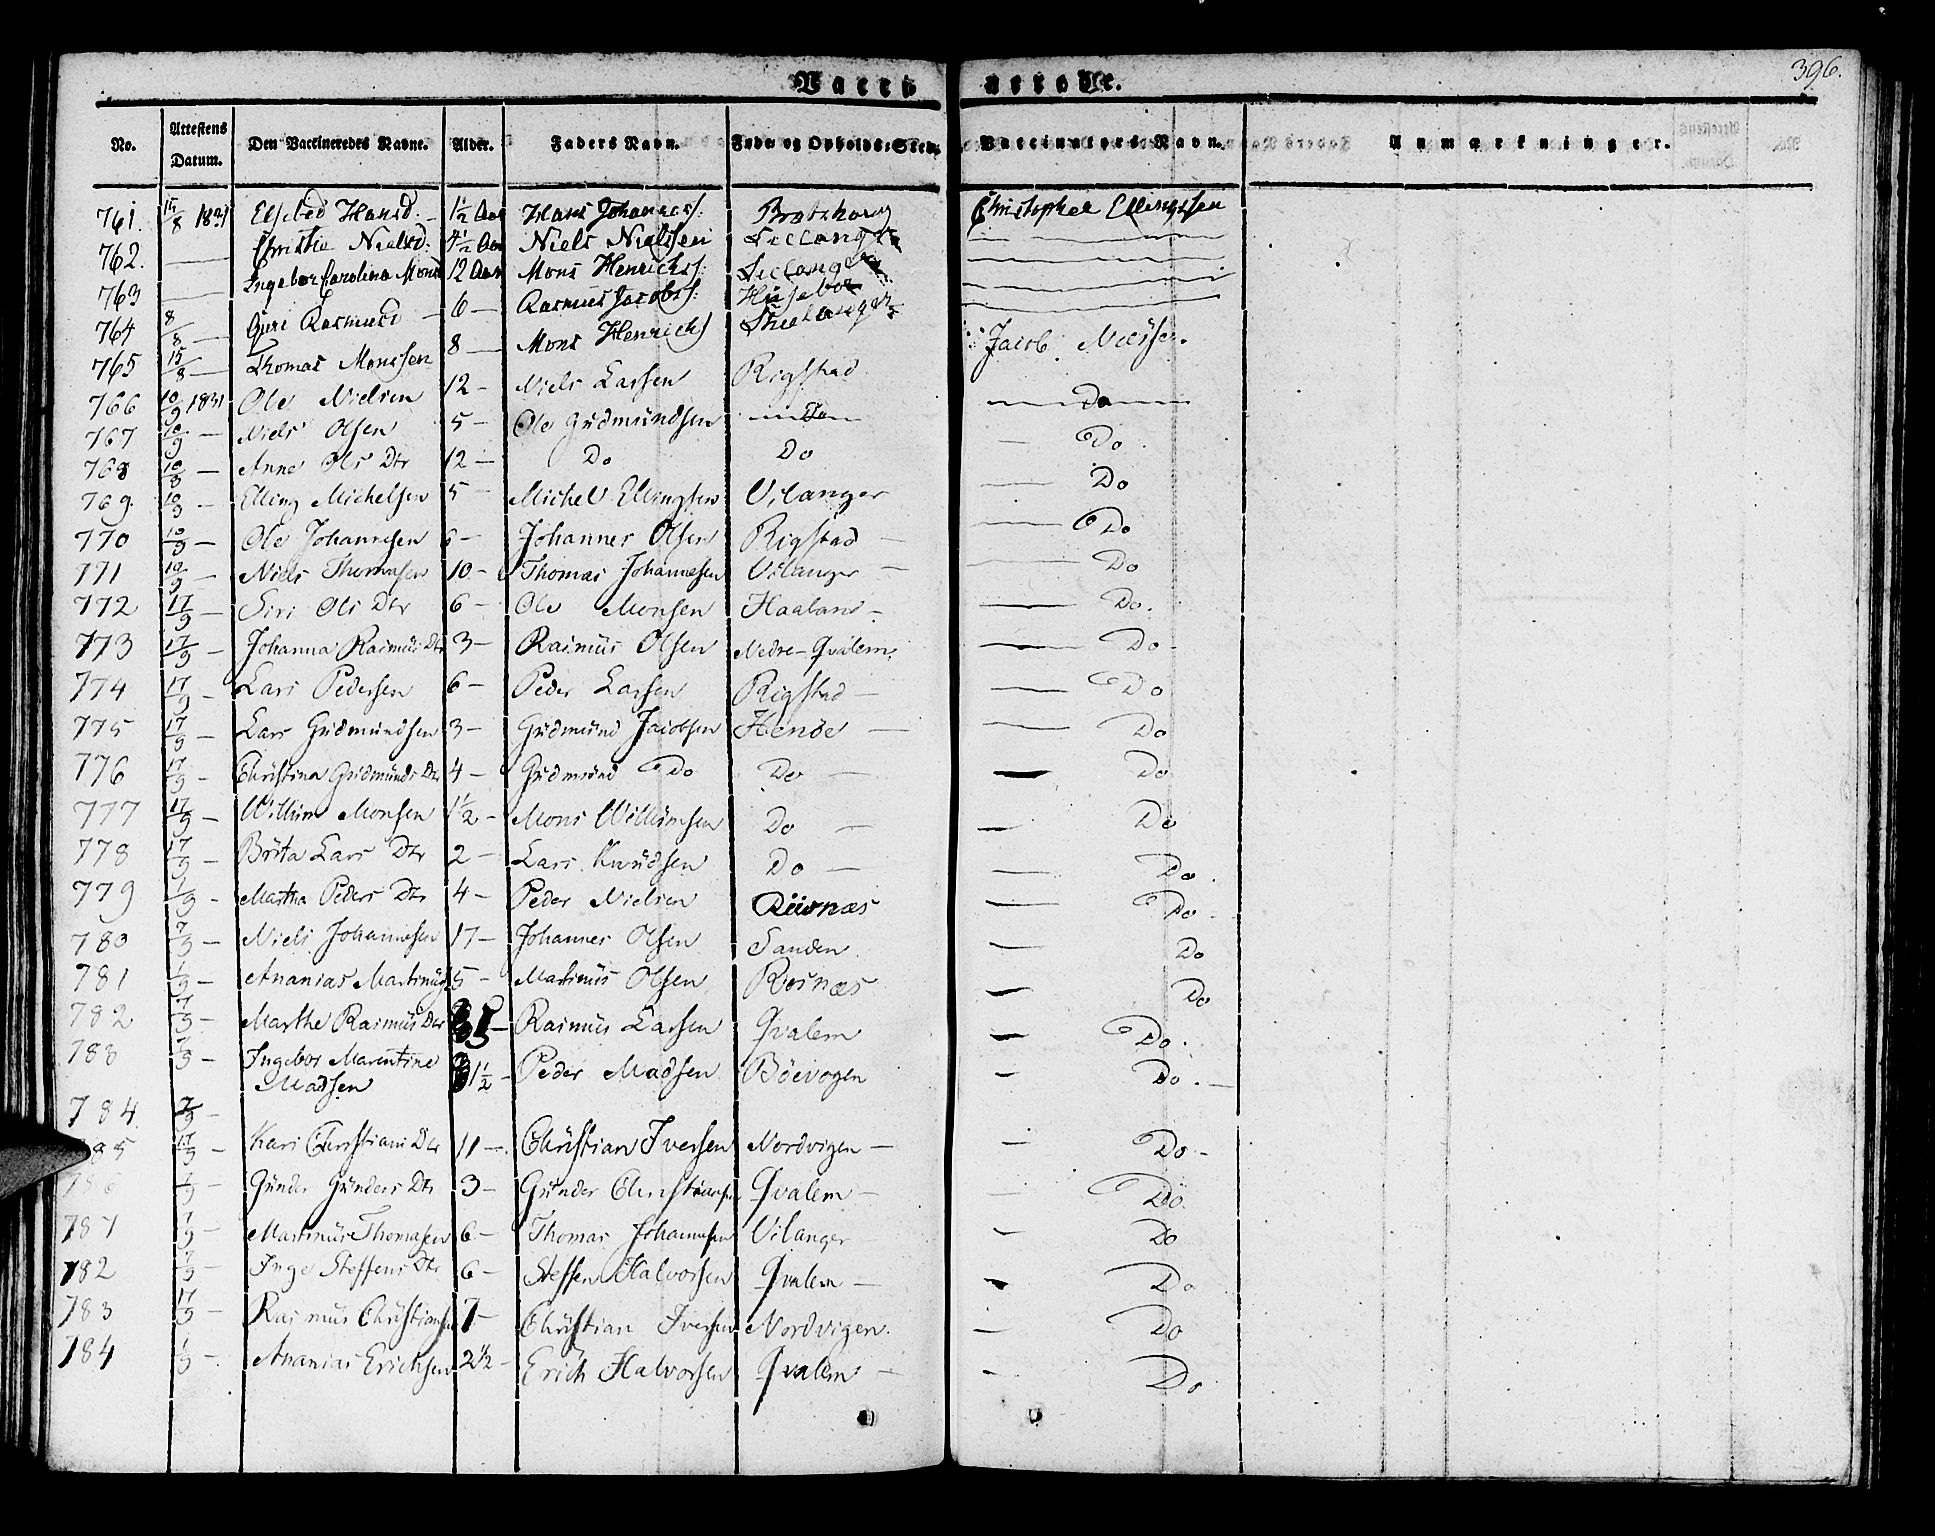 396.
Vacci nerede.
No. Attestens Datum. Den Vaccineredes Navne. Alder. Faders Navn. Føde og Opholds-Sted. Vaccinateurs Navn. Anmærkninger.
761. 15/8 1831 Elsebed Hansd. 1½ Aar Hans Johanness: Christopher Ellingssen
762. — Christie Nielsd: 4½ Aar Niels Nielssen —
763 — Ingebor Carolina Monsd 12 Aar Mons Henrichss: —
764 8/8 — Guri Rasmusd — 6 — Rasmus Jacobss: Husebøe —
765 15/8 — Thomas Monssen 8 — Mons Henrichs —
766 10/9 1831 Ole Nielsen 12 — Niels Larsen Rigstad Jacob Nielsen.
767 10/9 — Niels Olsen 5 — Ole Gudmundsen — Do — — Do —
768 10/9 — Anne Ols Dtr 12 — Do Do — Do
769. 10/9 — Elling Michelsen 5 — Michel Ellingsen Vilanger — Do
770 10/9 — Ole Johannesen 6 — Johannes Olsen Rigstad — — Do
771 10/9 — Niels Thomasen 10 — Thomas Johannesen Vilanger — — Do
772 17/9 — Siri Ols Dtr 6 — Ole Monsen Haaland — — Do.
773 17/9 — Johanna Rasmus Dtr 3 — Rasmus Olsen Nedre-Qvalem. — Do —
774 17/9 — Lars Pedersen 6 — Peder Larsen Rigstad — — Do
775 17/9 — Lars Gudmundsen 3 — Gudmund Jacobsen Henøe — — Do
776 17/9 — Christina Gudmunds Dtr 4 — Gudmund Do Do — — Do
777 17/9 — Willum Monsen 1½ — Mons Willumsen Do — — Do
778 17/9 — Brita Lars Dtr 2 — Lars Knudsen Do — — Do.
779 1/9 — Martha Peders Dtr 4 — Peder Nielsen Riisnæs — Do —
780 7/9 — Niels Johannesen 17 — Johannes Olsen Sanden. — Do
781 1/9 — Ananias Martinus 5 — Martinus Olsen Risnæs — Do
782 7/9 — Marthe Rasmus Dtr — Rasmus Larsen Qvalem — Do.
783 7/9 — Ingebor Marentine 1½ — Peder Madsen Böevogen — Do. —
Madsen
784. 7/9 —
785 17/9 — Kari Christians Dtr 11 — Christian Iversen Nordvigen — — Do. —
786 7/9 — Gunder Gunders Dtr 3 — Gunder Christiansen Qvalem — — Do.
787 7/9 — Martinus Thomasen 6 — Thomas Johannesen Vilanger — Do
782 7/9 — Inge Steffens Dtr 6 — Steffen Halvorsen Qvalem — — Do
783 17/9 — Rasmus Christiansen 7 — Christian Iversen Nordvigen. — Do
784 1/9 — Ananias Erichsen 2½ — Erich Halvorsen Qvalem — — Do